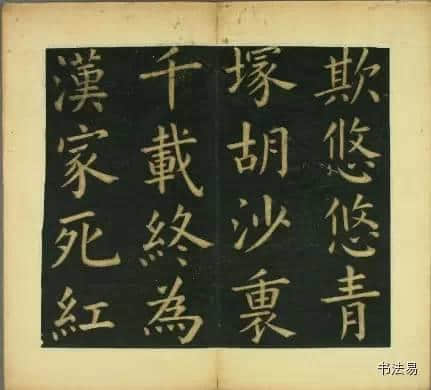 欺悠悠青
塚胡沙裏
千載終為
漢家死紅
书法易